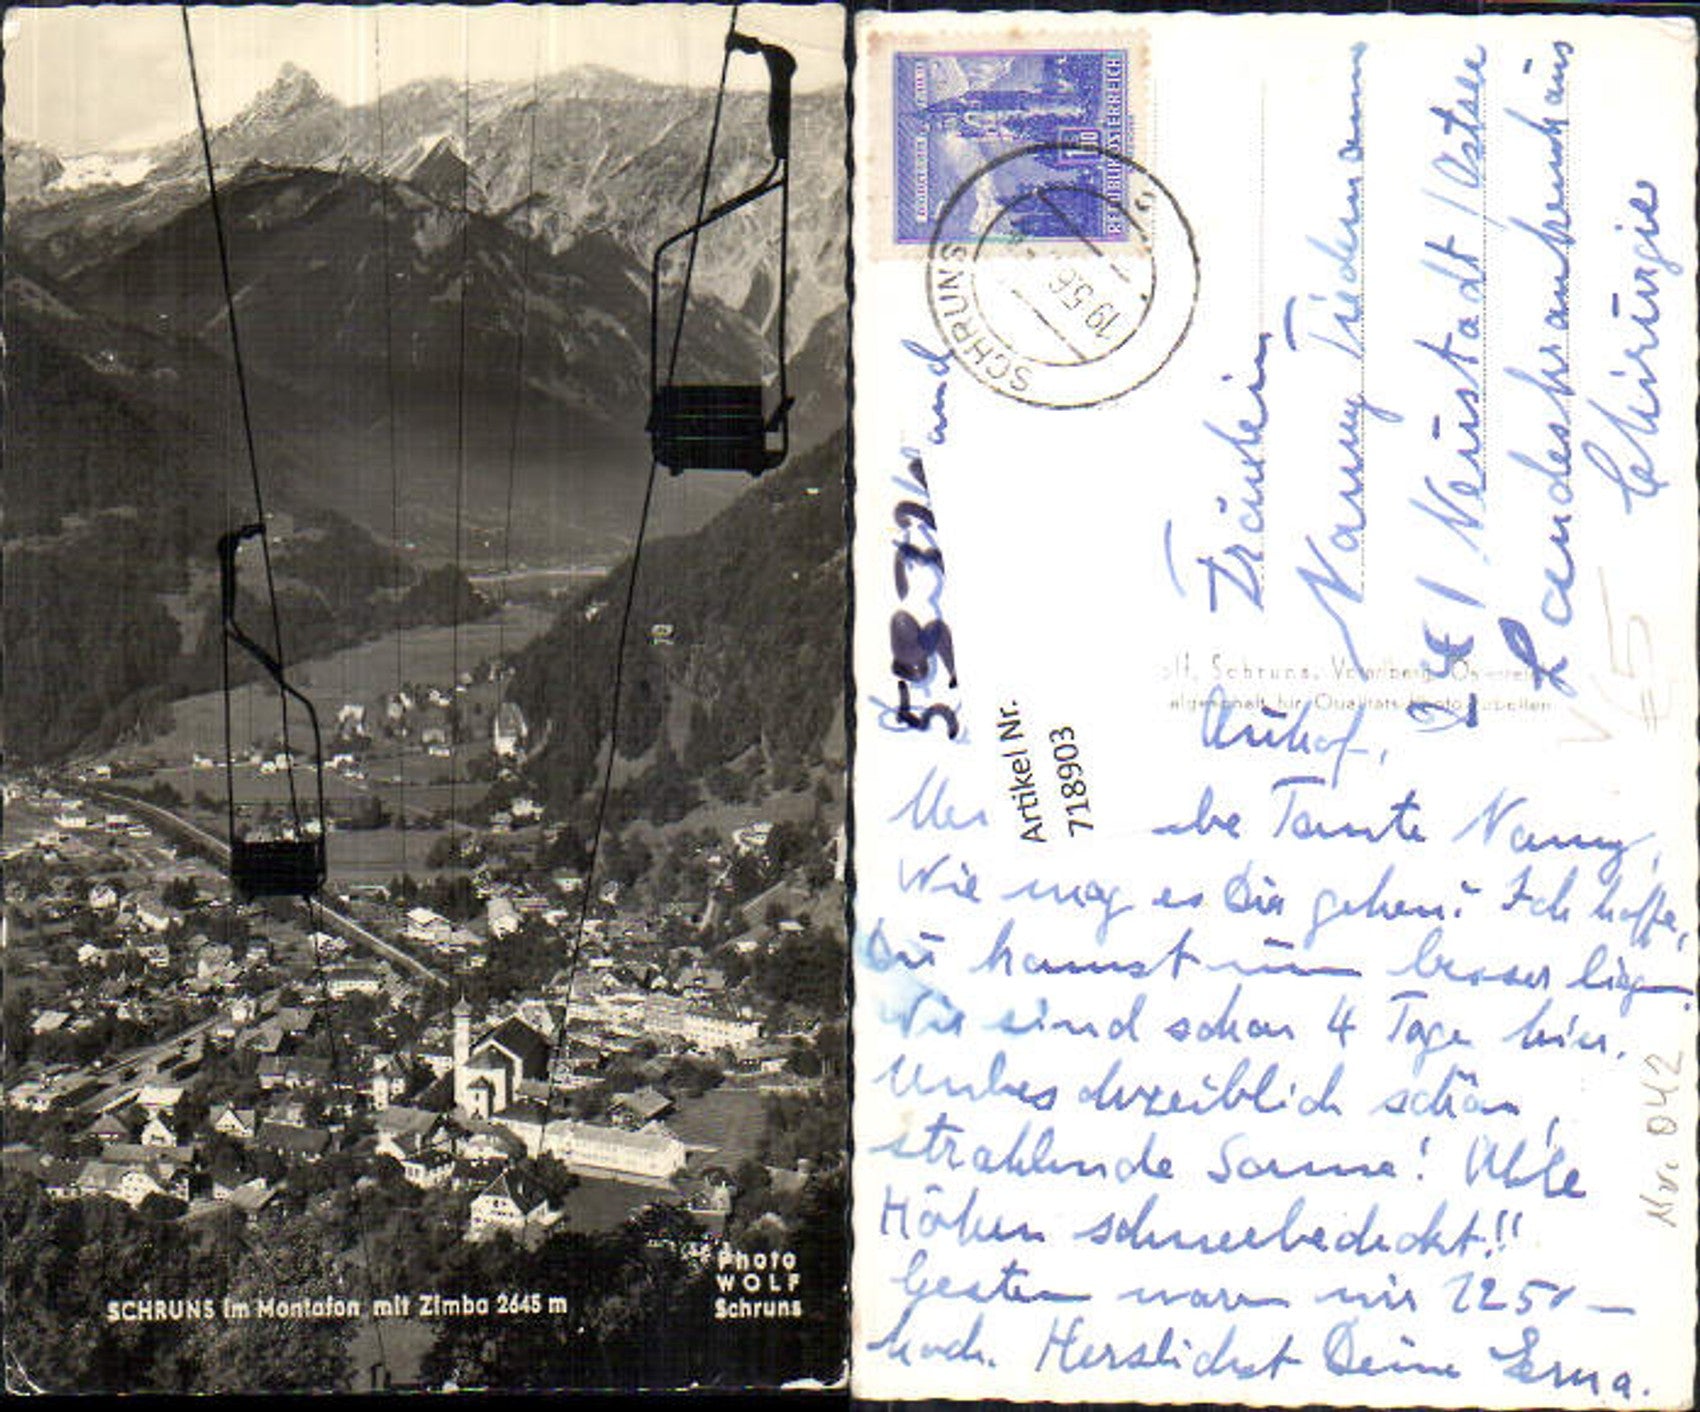 SCHRUNS im Montafon mit Zimba 2645 m
Photo
WOLF
Schruns
REPUBLIK ÖSTERREICH
1.50
SCHRUNS
19.5.6
Fräulein
Nanny Tiedemann
Neustadt / Ostsee
Landeskrankenhaus
Chirurgie
Schruns, Vorarlberg
für Qualitäts
Artikel Nr.
718903
und
Tante Nanny,
Wie mag es Dir gehen? Ich hoffe,
Du kannst nun besser liegen.
Wir sind schon 4 Tage hier.
Unbeschreiblich schön,
strahlende Sonne! Alle
Höhen schneebedeckt!!
Gestern waren wir 1250
hoch. Herzlichst Deine Erna.
Nr. 042